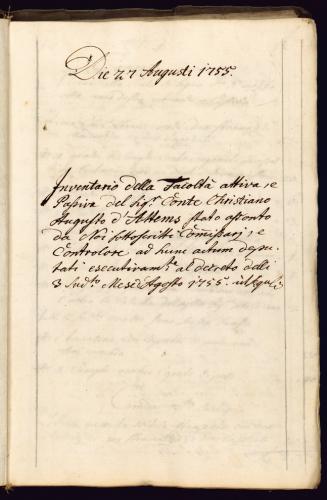 Die 27 Augusti 1755.
Inventario della Facoltà attiva, e
Passiva del Sigr Conte Christiano
Augusto d'Attems stato assonto
da Noi sottoscritti Comissarj, e
Controlore ad hunc actum depu-
tati esecutivamte al decreto delli
3 sudto Mese d'Agosto 1755.